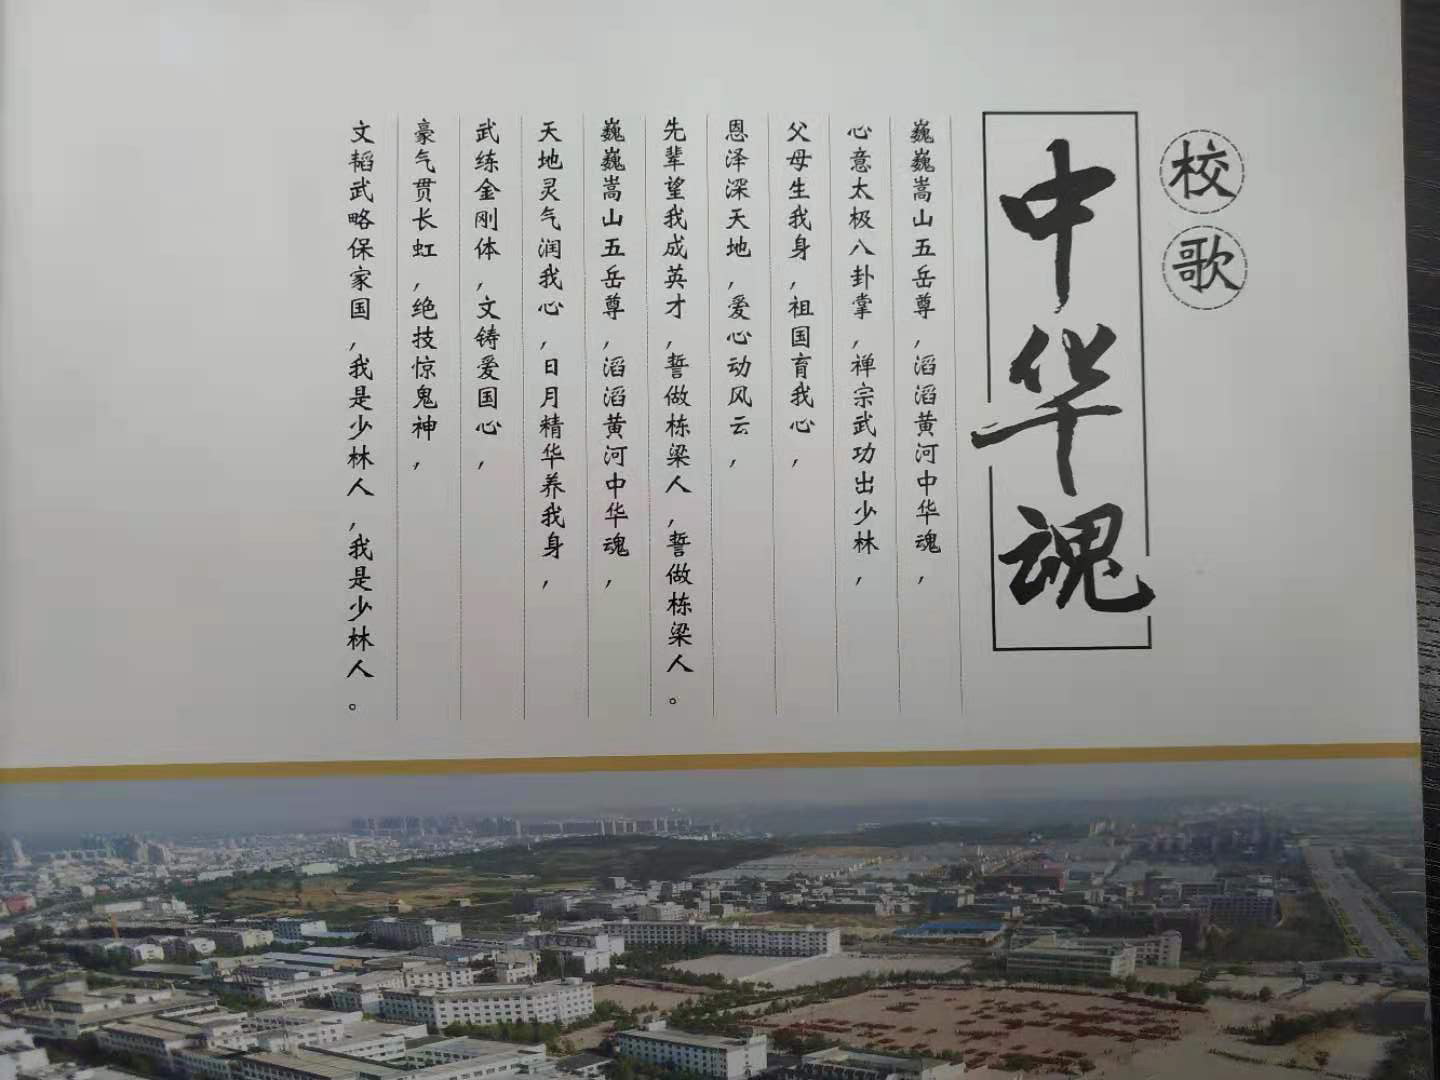 校歌
中华魂
巍巍嵩山五岳尊，滔滔黄河中华魂，
心意太极八卦掌，禅宗武功出少林，
父母生我身，祖国育我心，
恩泽深天地，爱心动风云，
先辈望我成英才，誓做栋梁人，誓做栋梁人。
巍巍嵩山五岳尊，滔滔黄河中华魂，
天地灵气润我心，日月精华养我身，
武练金刚体，文铸爱国心，
豪气贯长虹，绝技惊鬼神，
文韬武略保家国，我是少林人，我是少林人。